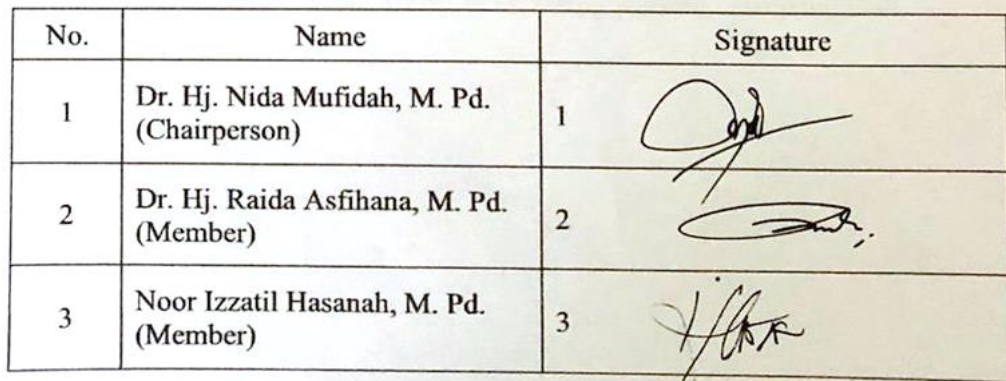 No. Name Signature
1 Dr. Hj. Nida Mufidah, M. Pd. 1
(Chairperson)
2 Dr. Hj. Raida Asfihana, M. Pd. 2
(Member)
3 Noor Izzatil Hasanah, M. Pd. 3
(Member)